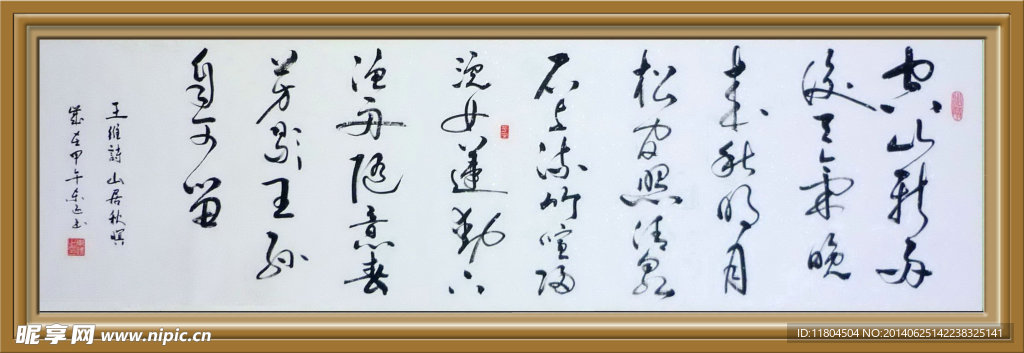 空山新雨
後天氣晚
来秋明月
松间照清泉
石上流竹喧归
浣女莲動下
渔舟随意春
芳歇王孫
自可留
王維詩山居秋暝
歲在甲午
昵享网 www.nipic.cn
ID:11804504 NO:20140625142238325141